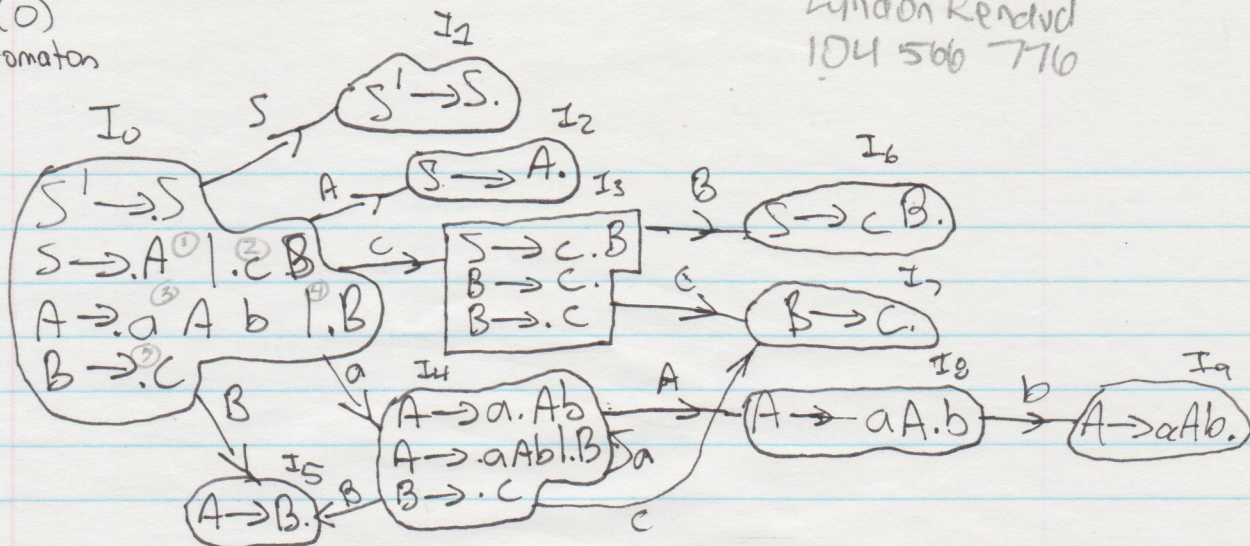 (0)
omaton
Lyndon Kendud
104 566 776
I1
S' → S.
S
I0
S' → .S
S → .A ① | ② .c B
A → .a ③ A b | ④ .B
B → ⑤ .c
A
I2
S → A.
c
I3
S → c.B
B → c.
B → .c
B
I6
S → c B.
c
I7
B → c.
a
I4
A → a.Ab
A → .aAb|.B
B → .c
a
A
I8
A → aA.b
b
I9
A → aAb.
B
I5
A → B.
B
c